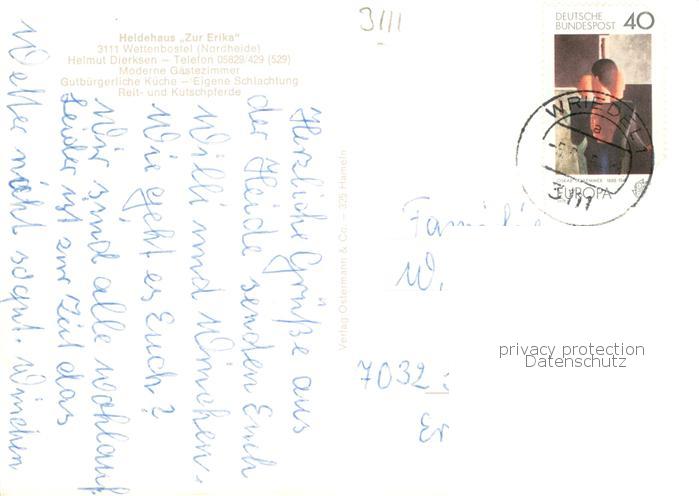 Heidehaus „Zur Erika"
3111 Wettenbostel (Nordheide)
Helmut Dierksen — Telefon 05829/429 (529)
Moderne Gästezimmer
Gutbürgerliche Küche — Eigene Schlachtung
Reit- und Kutschpferde
3111
DEUTSCHE
BUNDESPOST
40
WRIEDEL 1
a
3111
EUROPA
Herzliche Grüße aus
der Heide senden Euch
Willi und Winchen.
Wie geht es Euch?
Wir sind alle wohlauf
Leider ist zur Zeit das
Wetter nicht so gut. Winchen
Verlag Ostermann & Co. — 325 Hameln
Familie
W.
7032
Er
privacy protection
Datenschutz